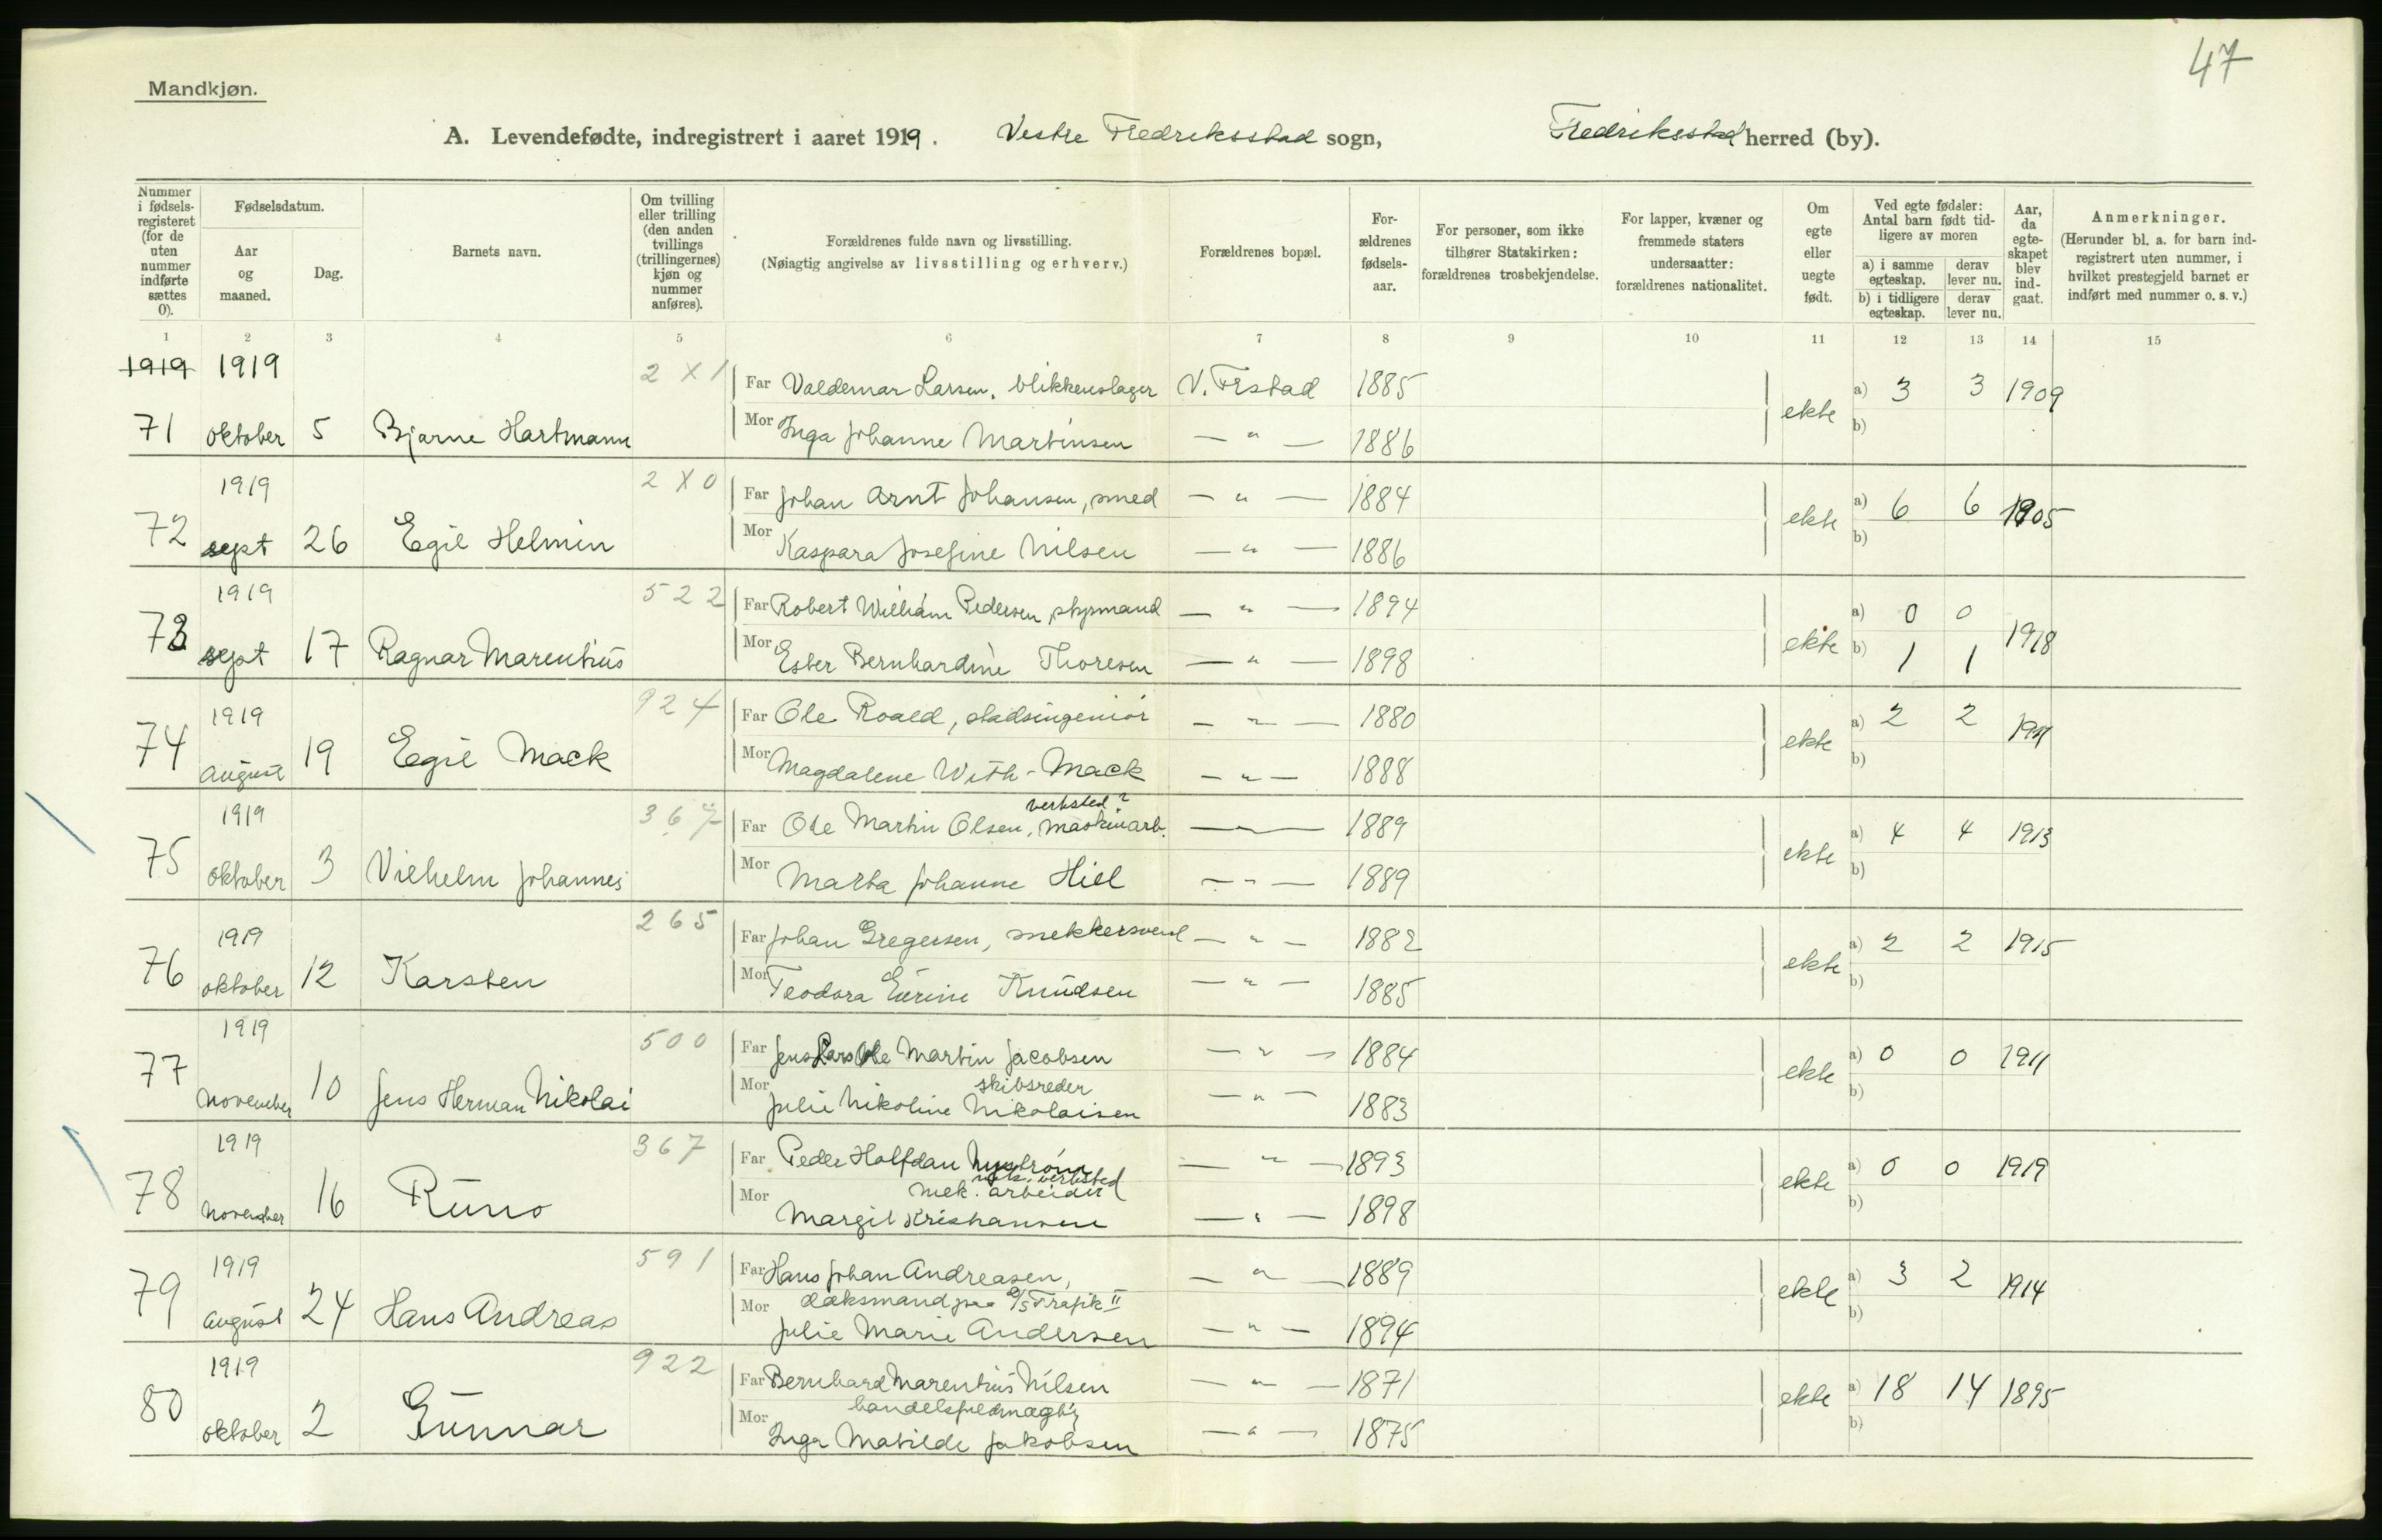 47
Mandkjøn.
A. Levendefødte, indregistrert i aaret 1919. Vestre Fredriksstad sogn, Fredriksstad herred (by).
Nummer i fødsels-registeret (for de uten nummer indførte sættes 0).
Fødselsdatum.
Aar og maaned.
Dag.
Barnets navn.
Om tvilling eller trilling (den anden tvillings (trillingernes) kjøn og nummer anføres).
Forældrenes fulde navn og livsstilling.
(Nøiagtig angivelse av livsstilling og erhverv.)
Forældrenes bopæl.
For-ældrenes fødsels-aar.
For personer, som ikke tilhører Statskirken: forældrenes trosbekjendelse.
For lapper, kvæner og fremmede staters undersaatter: forældrenes nationalitet.
Om egte eller uegte født.
Ved egte fødsler: Antal barn født tid-ligere av moren
a) i samme egteskap. derav lever nu.
b) i tidligere egteskap. derav lever nu.
Aar, da egte-skapet blev ind-gaat.
Anmerkninger.
(Herunder bl. a. for barn ind-registrert uten nummer, i hvilket prestegjeld barnet er indført med nummer o. s. v.)
1 2 3 4 5 6 7 8 9 10 11 12 13 14 15
1919 1919 2 X 1 Far Valdemar Larsen, blikkenslager V. Frstad 1885 a) 3 3 1909
71 oktober 5 Bjarne Hartmann Mor Inga Johanne Martinsen — " — 1886 ekte b)
1919 2 X 0 Far Johan Arnt Johansen, smed — " — 1884 a) 6 6 1905
72 sept 26 Egil Helmin Mor Kaspara Josefine Nilsen — " — 1886 ekte b)
1919 5 2 2 Far Robert William Pedersen, styrmand — " — 1894 a) 0 0 1918
73 sept 17 Ragnar Marentius Mor Ester Bernhardine Thoresen — " — 1898 ekte b) 1 1
1919 9 2 4 Far Ole Roald, stadsingeniør — " — 1880 a) 2 2 1911
74 august 19 Egil Mack Mor Magdalene With-Mack — " — 1888 ekte b)
verksted?
1919 3 6 7 Far Ole Martin Olsen, maskinarb. — " — 1889 a) 4 4 1913
75 oktober 3 Vilhelm Johannes Mor Marta Johanne Hiel — " — 1889 ekte b)
1919 2 6 5 Far Johan Gregersen, snekkersvend — " — 1882 a) 2 2 1915
76 oktober 12 Karsten Mor Teodora Eurine Knudsen — " — 1885 ekte b)
1919 5 0 0 Far Jens Lars Ole Martin Jacobsen — " — 1884 a) 0 0 1911
skibsreder
77 november 10 Jens Herman Nikolai Mor Julie Nikoline Nikolaisen — " — 1883 ekte b)
1919 3 6 7 Far Peder Halfdan Nystrøm — " — 1893 a) 0 0 1919
mek. verksted
mek. arbeider
78 november 16 Runo Mor Margit Kristiansen — " — 1898 ekte b)
1919 5 9 1 Far Hans Johan Andreasen, — " — 1889 a) 3 2 1914
dæksmand paa D/S Trafik II
79 august 24 Hans Andreas Mor Julie Marie Andersen — " — 1894 ekte b)
1919 9 2 2 Far Bernhard Marentius Nilsen — " — 1871 a) 18 14 1895
handelsfuldmægtig
80 oktober 2 Gunnar Mor Inga Matilde Jakobsen — " — 1875 ekte b)